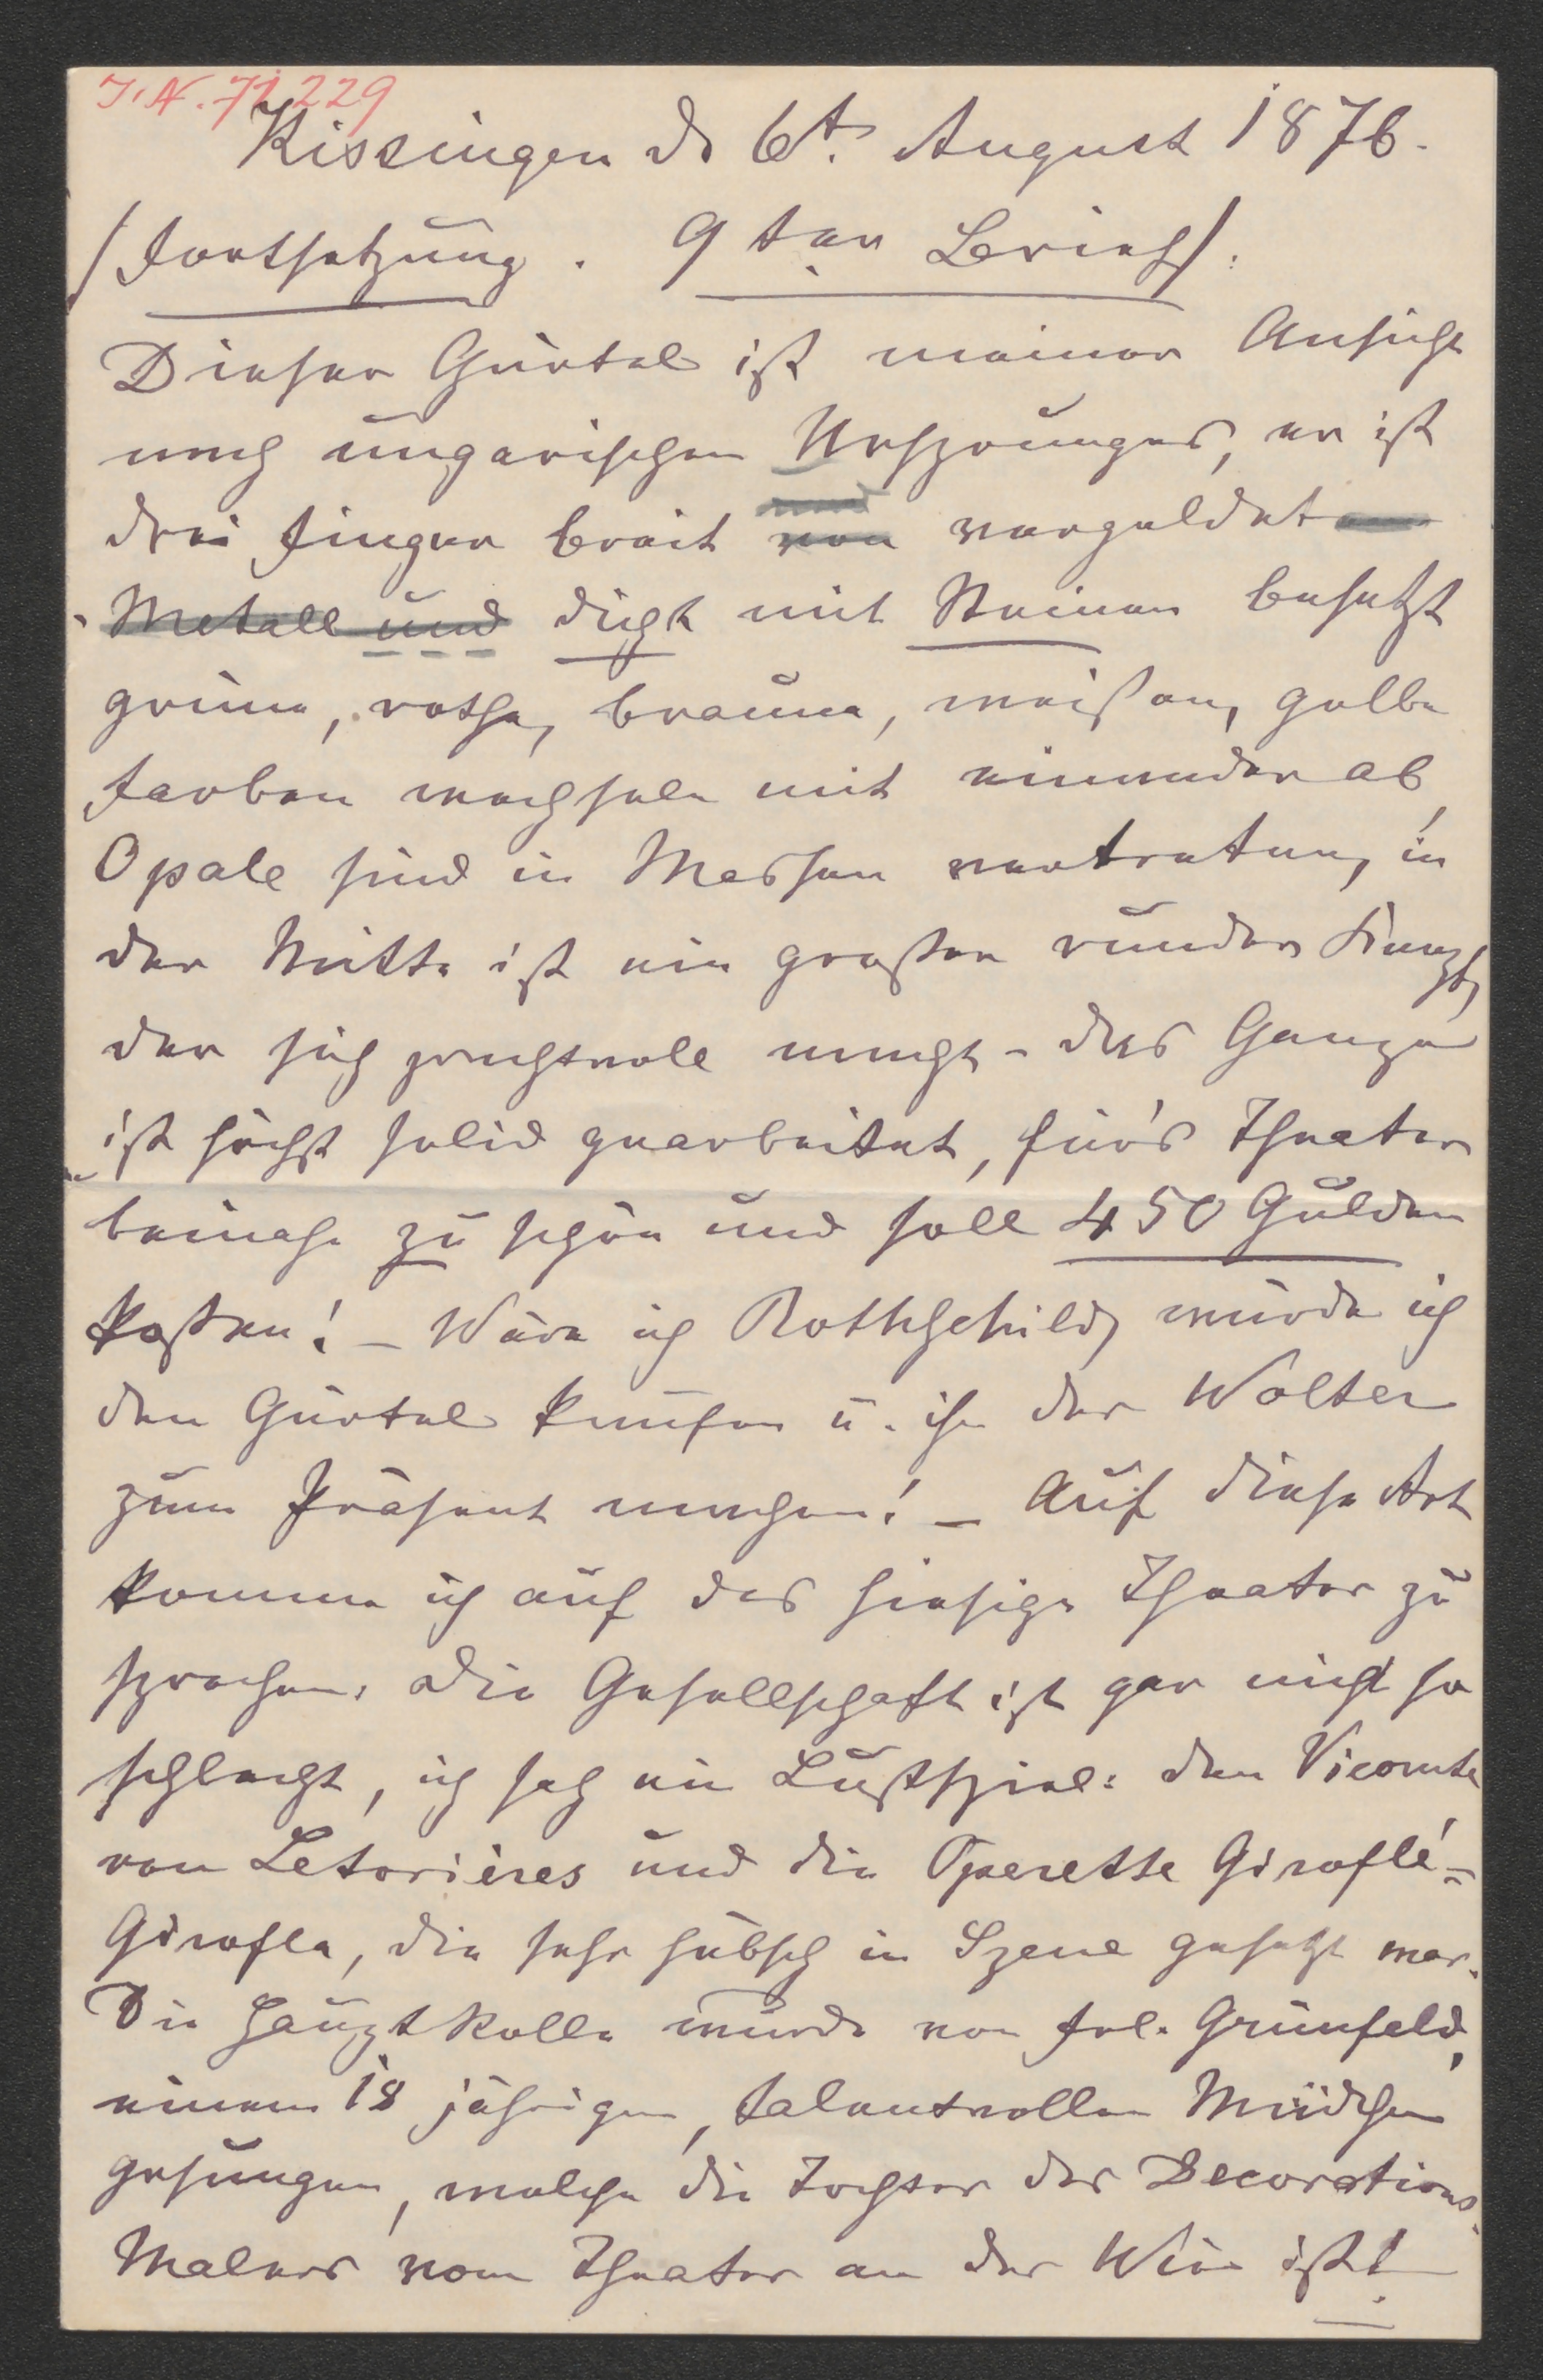 I. N. 71,229
Kissingen d. 6t. August 1876.
/Fortsetzung. 9ter Brief/:
Dieser Gürtel ist meiner Ansicht
nach ungarischen Ursprunges, er ist
drei Finger breit von und verguldet
Metall und dicht mit Steinen besetzt
grüne, rothe, braune, weißen, gelbe
Farben wechseln mit einander ab,
Opale sind in Massen vertreten, in
der Mitte ist ein großer runder Knopf,
der sich prachtvoll macht – das Ganze
ist höchst solid gearbeitet, für's Theater
beinahe zu schön und soll 450 Gulden
kosten! – Wäre ich Rothschild, würde ich
den Gürtel kaufen u. ihn der Wolter
zum Präsent machen! – Auf diese Art
komme ich auf das hiesige Theater zu
sprechen. Die Gesellschaft ist gar nicht so
schlecht, ich sah ein Lustspiel: den Vicomte
von Letorières und die Operette Giroflé-
Girofla, die sehr hübsch in Szene gesetzt war.
Die Hauptrolle wurde von Frl. Grünfeld,
einem 18 jährigen, talentvollen Mädchen
gesungen, welche die Tochter des Decorations-
Malers vom Theater an der Wien ist!